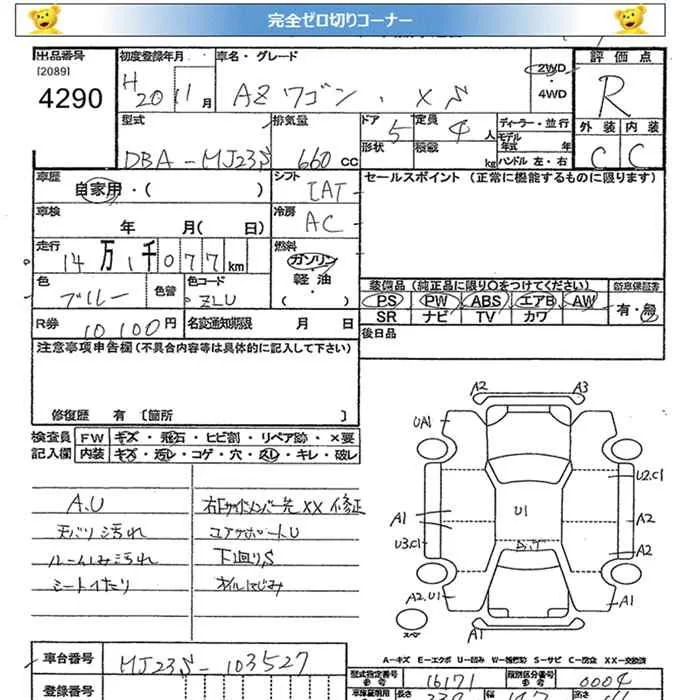 完全ゼロ切りコーナー
出品番号 初度登録年月 車名・グレード 2WD 評価点
[2089]
4290 H20 11月 AZワゴン・XS ・4WD R
型式 排気量 ドア 定員 ディーラー・並行 外装 内装
DBA-MJ23S 660cc 5 4人 モデル年式 年式 C C
形状 積載 kg ハンドル 左・右
車歴 シフト セールスポイント(正常に機能するものに限ります)
自家用・( ) IAT
車検 冷房
年 月( 日) AC
走行 燃料
14万1千077km ガソリン・軽油・( )
色 色替 色コード 装備品(純正品に限り〇をつけてください) 新車保証書
ブルー ZLU PS PW ABS エアB AW 有・無
SR ナビ TV カワ
R券 10100円 名変通知期限 月 日 後日品
注意事項申告欄(不具合内容等は具体的に記入して下さい)
修復歴 有 〔箇所 〕
検査員 FW キズ・飛石・ヒビ割・リペア跡・×要
記入欄 内装 キズ・汚レ・コゲ・穴・スレ・キレ・破レ
A.U 右下サイドメンバー先XX修正
天バリ汚れ コアサポートU
ルームしみ汚れ 下廻りS
シートイたみ オイルにじみ
A2 A3
UA1
U2.C1
U1
A1 A2
U3.C1
A2
A2.U1 A1
スペア
A1
A-キズ E-エクボ U-凹み W-補修跡 S-サビ C-腐食 XX-交換済
車台番号 MJ23S-103527
型式指定番号 16171 類別区分番号 0004
登録番号
長さ 幅 高さ